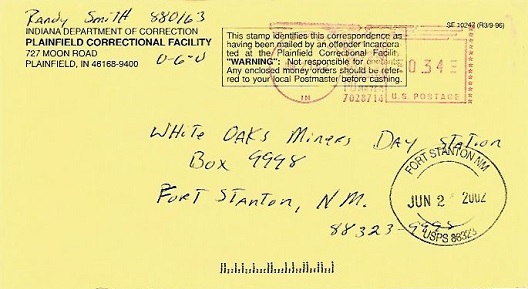 Randy Smith 880163
INDIANA DEPARTMENT OF CORRECTION
PLAINFIELD CORRECTIONAL FACILITY
727 MOON ROAD
PLAINFIELD, IN 46168-9400
O-6-U
This stamp identifies this correspondence as
having been mailed by an offender incarcera
ted at the Plainfield Correctional Facilit.
"WARNING": Not responsible for contents.
Any enclosed money orders should be refer-
red to your local Postmaster before cashing.
SF 10247 (R3/9-96)
0.34E
IN
7028714
U.S. POSTAGE
White Oaks Miners Day Station
Box 9998
Fort Stanton, N.M.
88323-9998
FORT STANTON NM
JUN 2 2002
USPS 88323